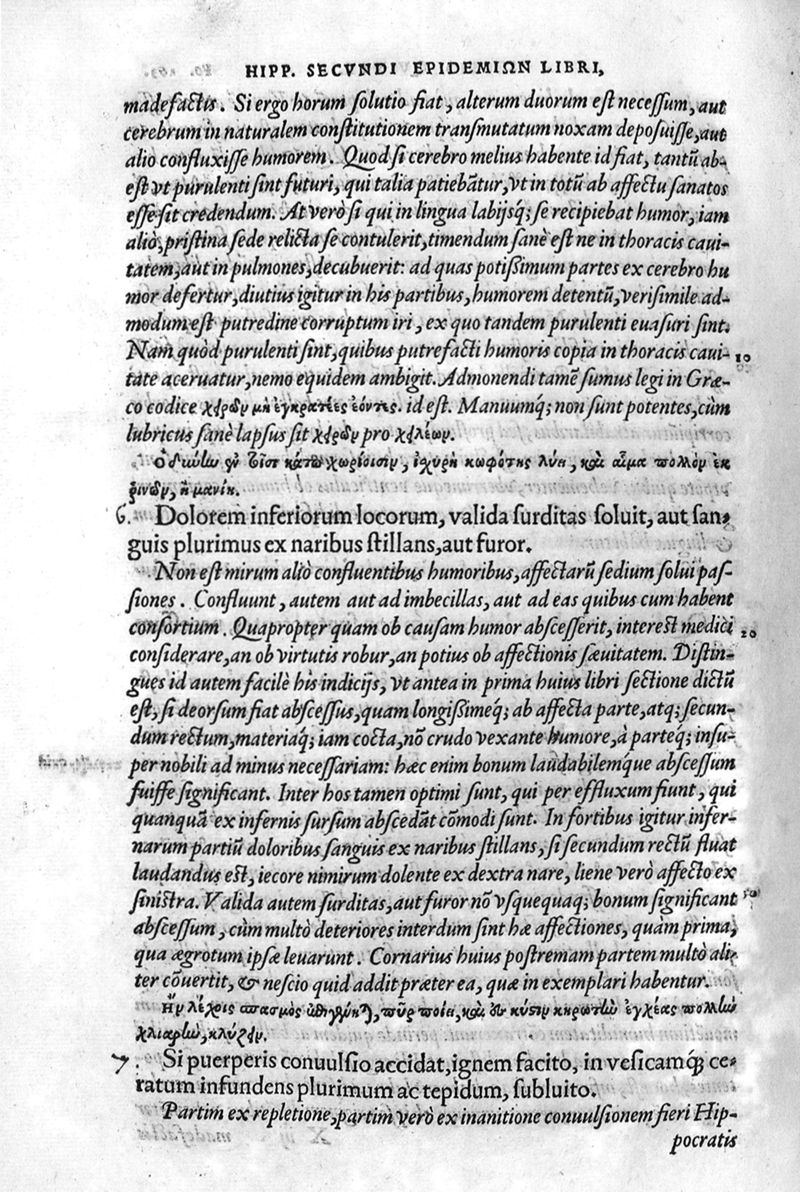 HIPP. SECVNDI EPIDEMIΩN LIBRI,
madefactis. Si ergo horum solutio fiat, alterum duorum est necessum, aut
cerebrum in naturalem constitutionem transmutatum noxam deposuisse, aut
alio confluxisse humorem. Quod si cerebro melius habente id fiat, tantũ ab-
est vt purulenti sint futuri, qui talia patiebãtur, vt in totũ ab affectu sanatos
esse sit credendum. At verò si qui in lingua labijsq́; se recipiebat humor, iam
aliò, pristina sede relicta se contulerit, timendum sanè est ne in thoracis caui-
tatem, aut in pulmones, decubuerit: ad quas potißimum partes ex cerebro hu
mor defertur, diutius igitur in his partibus, humorem detentũ, verisimile ad-
modum est putredine corruptum iri, ex quo tandem purulenti euasuri sint.
Nam quòd purulenti sint, quibus putrefacti humoris copia in thoracis caui- 10
tate aceruatur, nemo equidem ambigit. Admonendi tamẽ sumus legi in Græ-
co codice χειρῶν μὴ ἐγκρατέες ἐόντες. id est. Manuumq́; non sunt potentes, cùm
lubricus sanè lapsus sit χειρῶν pro χειλέων.
Ὀδύνην ἐν τοῖσι κάτω χωρίοισιν, ἰσχυρὴ κωφότης λύει, καὶ αἷμα πολλὸν ἐκ
ῥινῶν, ἢ μανίη.
6. Dolorem inferiorum locorum, valida surditas soluit, aut san-
guis plurimus ex naribus stillans, aut furor.
Non est mirum aliò confluentibus humoribus, affectarũ sedium solui pas-
siones. Confluunt, autem aut ad imbecillas, aut ad eas quibus cum habent
consortium. Quapropter quam ob causam humor abscesserit, interest medici 20
considerare, an ob virtutis robur, an potius ob affectionis sæuitatem. Distin-
gues id autem facilè his indicijs, vt antea in prima huius libri sectione dictũ
est, si deorsum fiat abscessus, quam longißimeq́; ab affecta parte, atq; secun-
dum rectum, materiaq́; iam cocta, nõ crudo vexante humore, à parteq́; insu-
per nobili ad minus necessariam: hæc enim bonum laudabilemque abscessum
fuisse significant. Inter hos tamen optimi sunt, qui per effluxum fiunt, qui
quanquã ex infernis sursum abscedãt cõmodi sunt. In fortibus igitur infer-
narum partiũ doloribus sanguis ex naribus stillans, si secundum rectũ fluat
laudandus est, iecore nimirum dolente ex dextra nare, liene verò affecto ex
sinistra. Valida autem surditas, aut furor nõ vsquequaq; bonum significant 30
abscessum, cùm multò deteriores interdum sint hæ affectiones, quam prima,
qua ægrotum ipsæ leuarunt. Cornarius huius postremam partem multò ali-
ter cõuertit, & nescio quid addit præter ea, quæ in exemplari habentur.
Ἢν λέχοις σπασμὸς ἐπιγένηται, πῦρ ποίει, καὶ ἐν κύστιν κηρωτὴν ἐγχέας πολλὴν
χλιαρὴν, κλύζειν.
7. Si puerperis conuulsio accidat, ignem facito, in vesicamq́; ce-
ratum infundens plurimum ac tepidum, subluito.
Partim ex repletione, partim verò ex inanitione conuulsionem fieri Hip-
pocratis